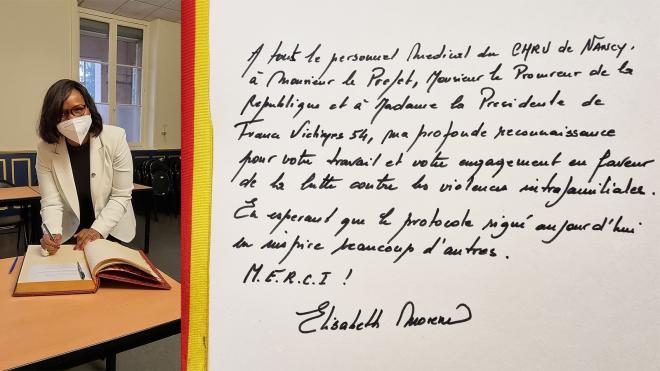 A tout le personnel medical du CHRU de Nancy,
à Monsieur le Préfet, Monsieur le Procureur de la
République et à Madame la Présidente de
France Victimes 54, ma profonde reconnaissance
pour votre travail et votre engagement en faveur
de la lutte contre les violences intrafamiliales.
En espérant que le protocole signé aujourd'hui
en inspire beaucoup d'autres.
M.E.R.C.I !
Elisabeth Moreno